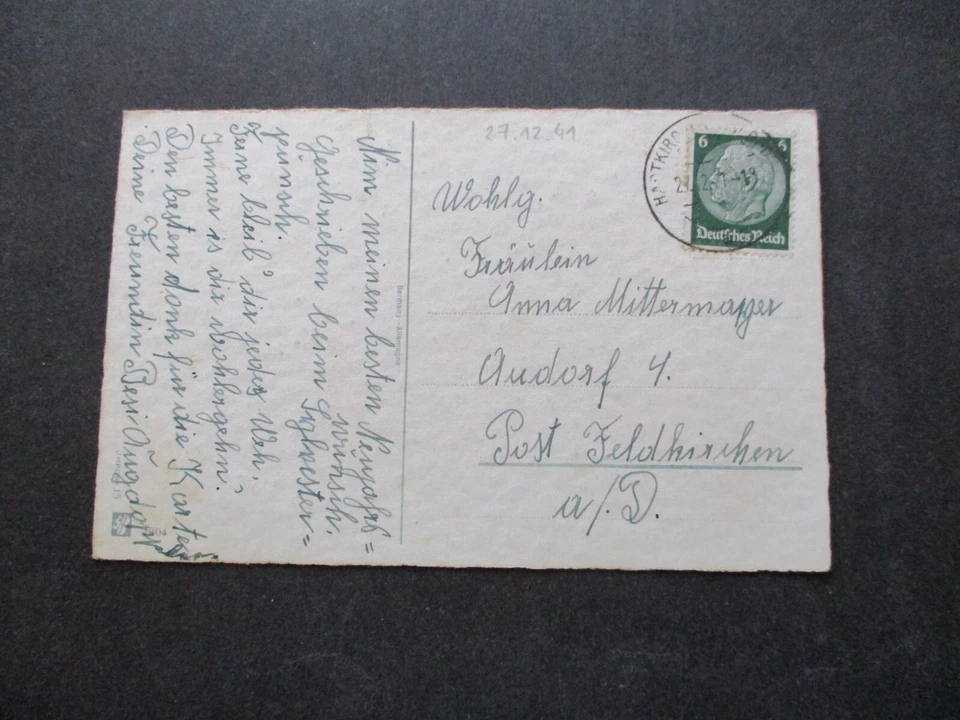 27.12.41
HARTKIRC
6 6
Deutsches Reich
Wohlg.
Fräulein
Anna Mittermayer
Audorf 4.
Post Feldkirchen
a/D.
Nim meinen besten Neujahrs=
wunsch,
Geschrieben beim Sylvester=
punsch.
Ferne bleib' dir jedes Weh,
Immer is dir wohlergehn.
Den besten dank für die Karte
Deine Freundin Resi
Germany